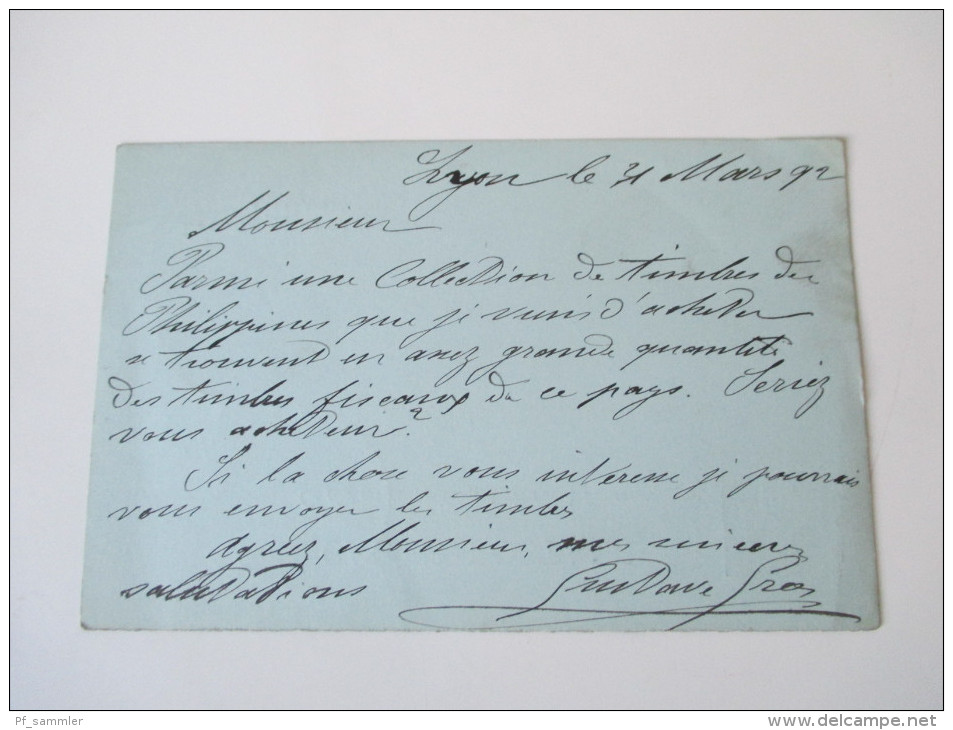 Lyon le 31 Mars 92
Monsieur
Parmi une Collection de timbres des
Philippines que je viens d'acheter
se trouvent en assez grande quantité
des timbres fiscaux de ce pays. Seriez
vous acheteur?
Si la chose vous interesse je pourrais
vous envoyer les timbres
Agréez, Monsieur, mes sincères
salutations Gustave Gros
Pf_sammler
www.delcampe.net